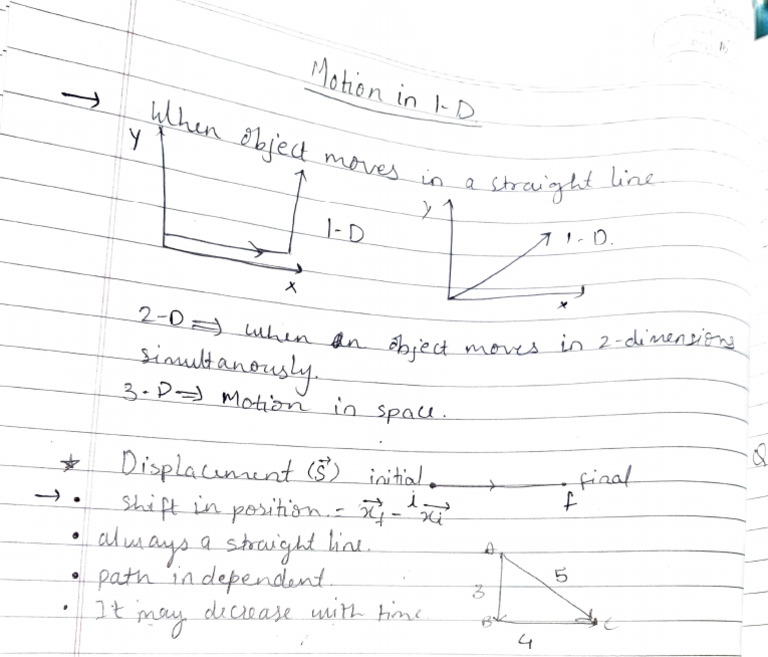 Motion in 1-D
→ When object moves in a straight line
y
1-D
x
y
1-D.
x
2-D ⇒ when an object moves in 2-dimensions
simultanously.
3-D ⇒ Motion in space.
* Displacement (s⃗) initial final
i f
→ • shift in position = x⃗f - x⃗i
• always a straight line.
• path independent.
• It may decrease with time
A
3 5
B C
4
Q